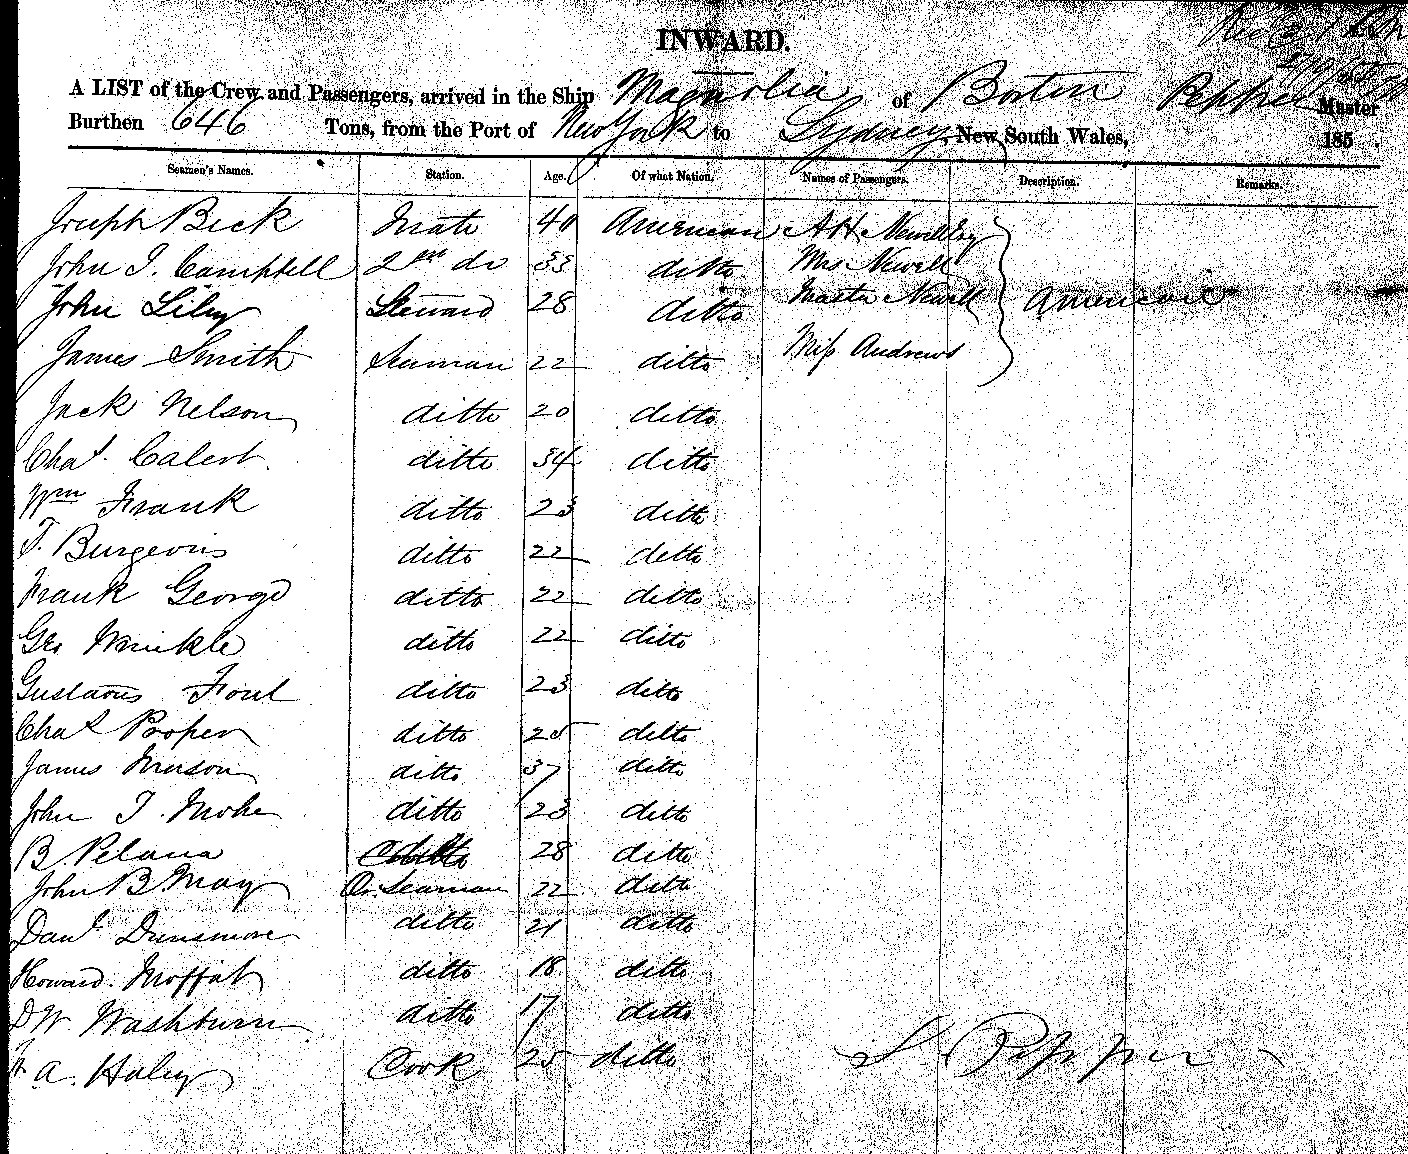 INWARD.
A LIST of the Crew and Passengers, arrived in the Ship Magnolia of Boston Pepper Master
Burthen 646 Tons, from the Port of New York to Sydney, New South Wales, 185 .
Seamen's Names. Station. Age. Of what Nation. Names of Passengers. Description. Remarks.
Joseph Beck Mate 40 American A H Newell Esq
John I. Campbell 2nd do 33 ditto Mrs Newell
John Liley Steward 28 ditto Master Newell American
James Smith Seaman 22 ditto Miss Andrews
Jack Nelson ditto 20 ditto
Chas. Calert ditto 34 ditto
Wm Frank ditto 23 ditto
T. Burgeois ditto 22 ditto
Frank George ditto 22 ditto
Geo Winkle ditto 22 ditto
Gustavus ditto 23 ditto
Chas Propen ditto 25 ditto
James ditto 37 ditto
John T. ditto 23 ditto
B Pelana 28 ditto
John B May Or. Seaman 22 ditto
Danl Dunsmore ditto 21 ditto
Howard Moffat ditto 18 ditto
D W Washburn ditto 17 ditto
A. Haley Cook 25 ditto
S. Pepper